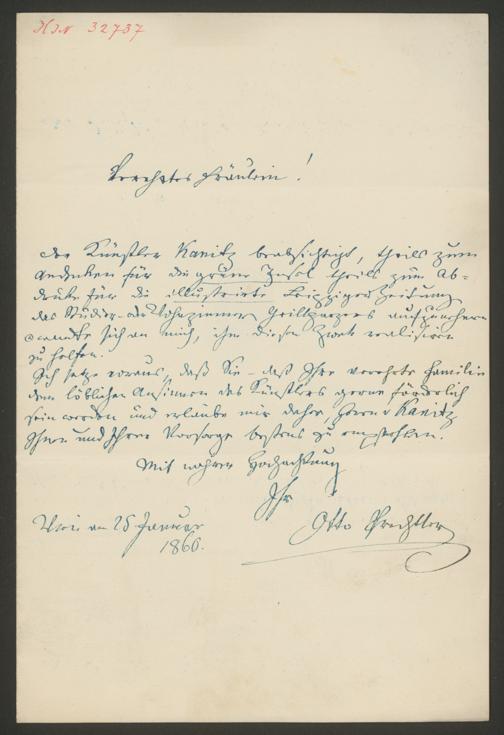 HIN 32737
Verehrtes Fräulein!
Der Künstler Kanitz beabsichtigt, theils zum
Andenken für die grüne Insel theils zum Ab-
druke für die illustrirte Leipziger Zeitung
das Studier- und Wohnzimmer Grillparzers aufzunehmen
wandte sich an mich, ihm diesen Zwek realisiren
zu helfen.
Ich setze voraus, daß Sie – daß Ihre verehrte Familie
dem löblichen Ansinnen des Künstlers gerne förderlich
sein werden und erlaube mir daher, Herrn Kanitz
Ihnen und Ihrer Vorsorge bestens zu empfehlen.
Mit wahrer Hochachtung
Ihr
Wien am 25 Januar
1860.
Otto Prechtler